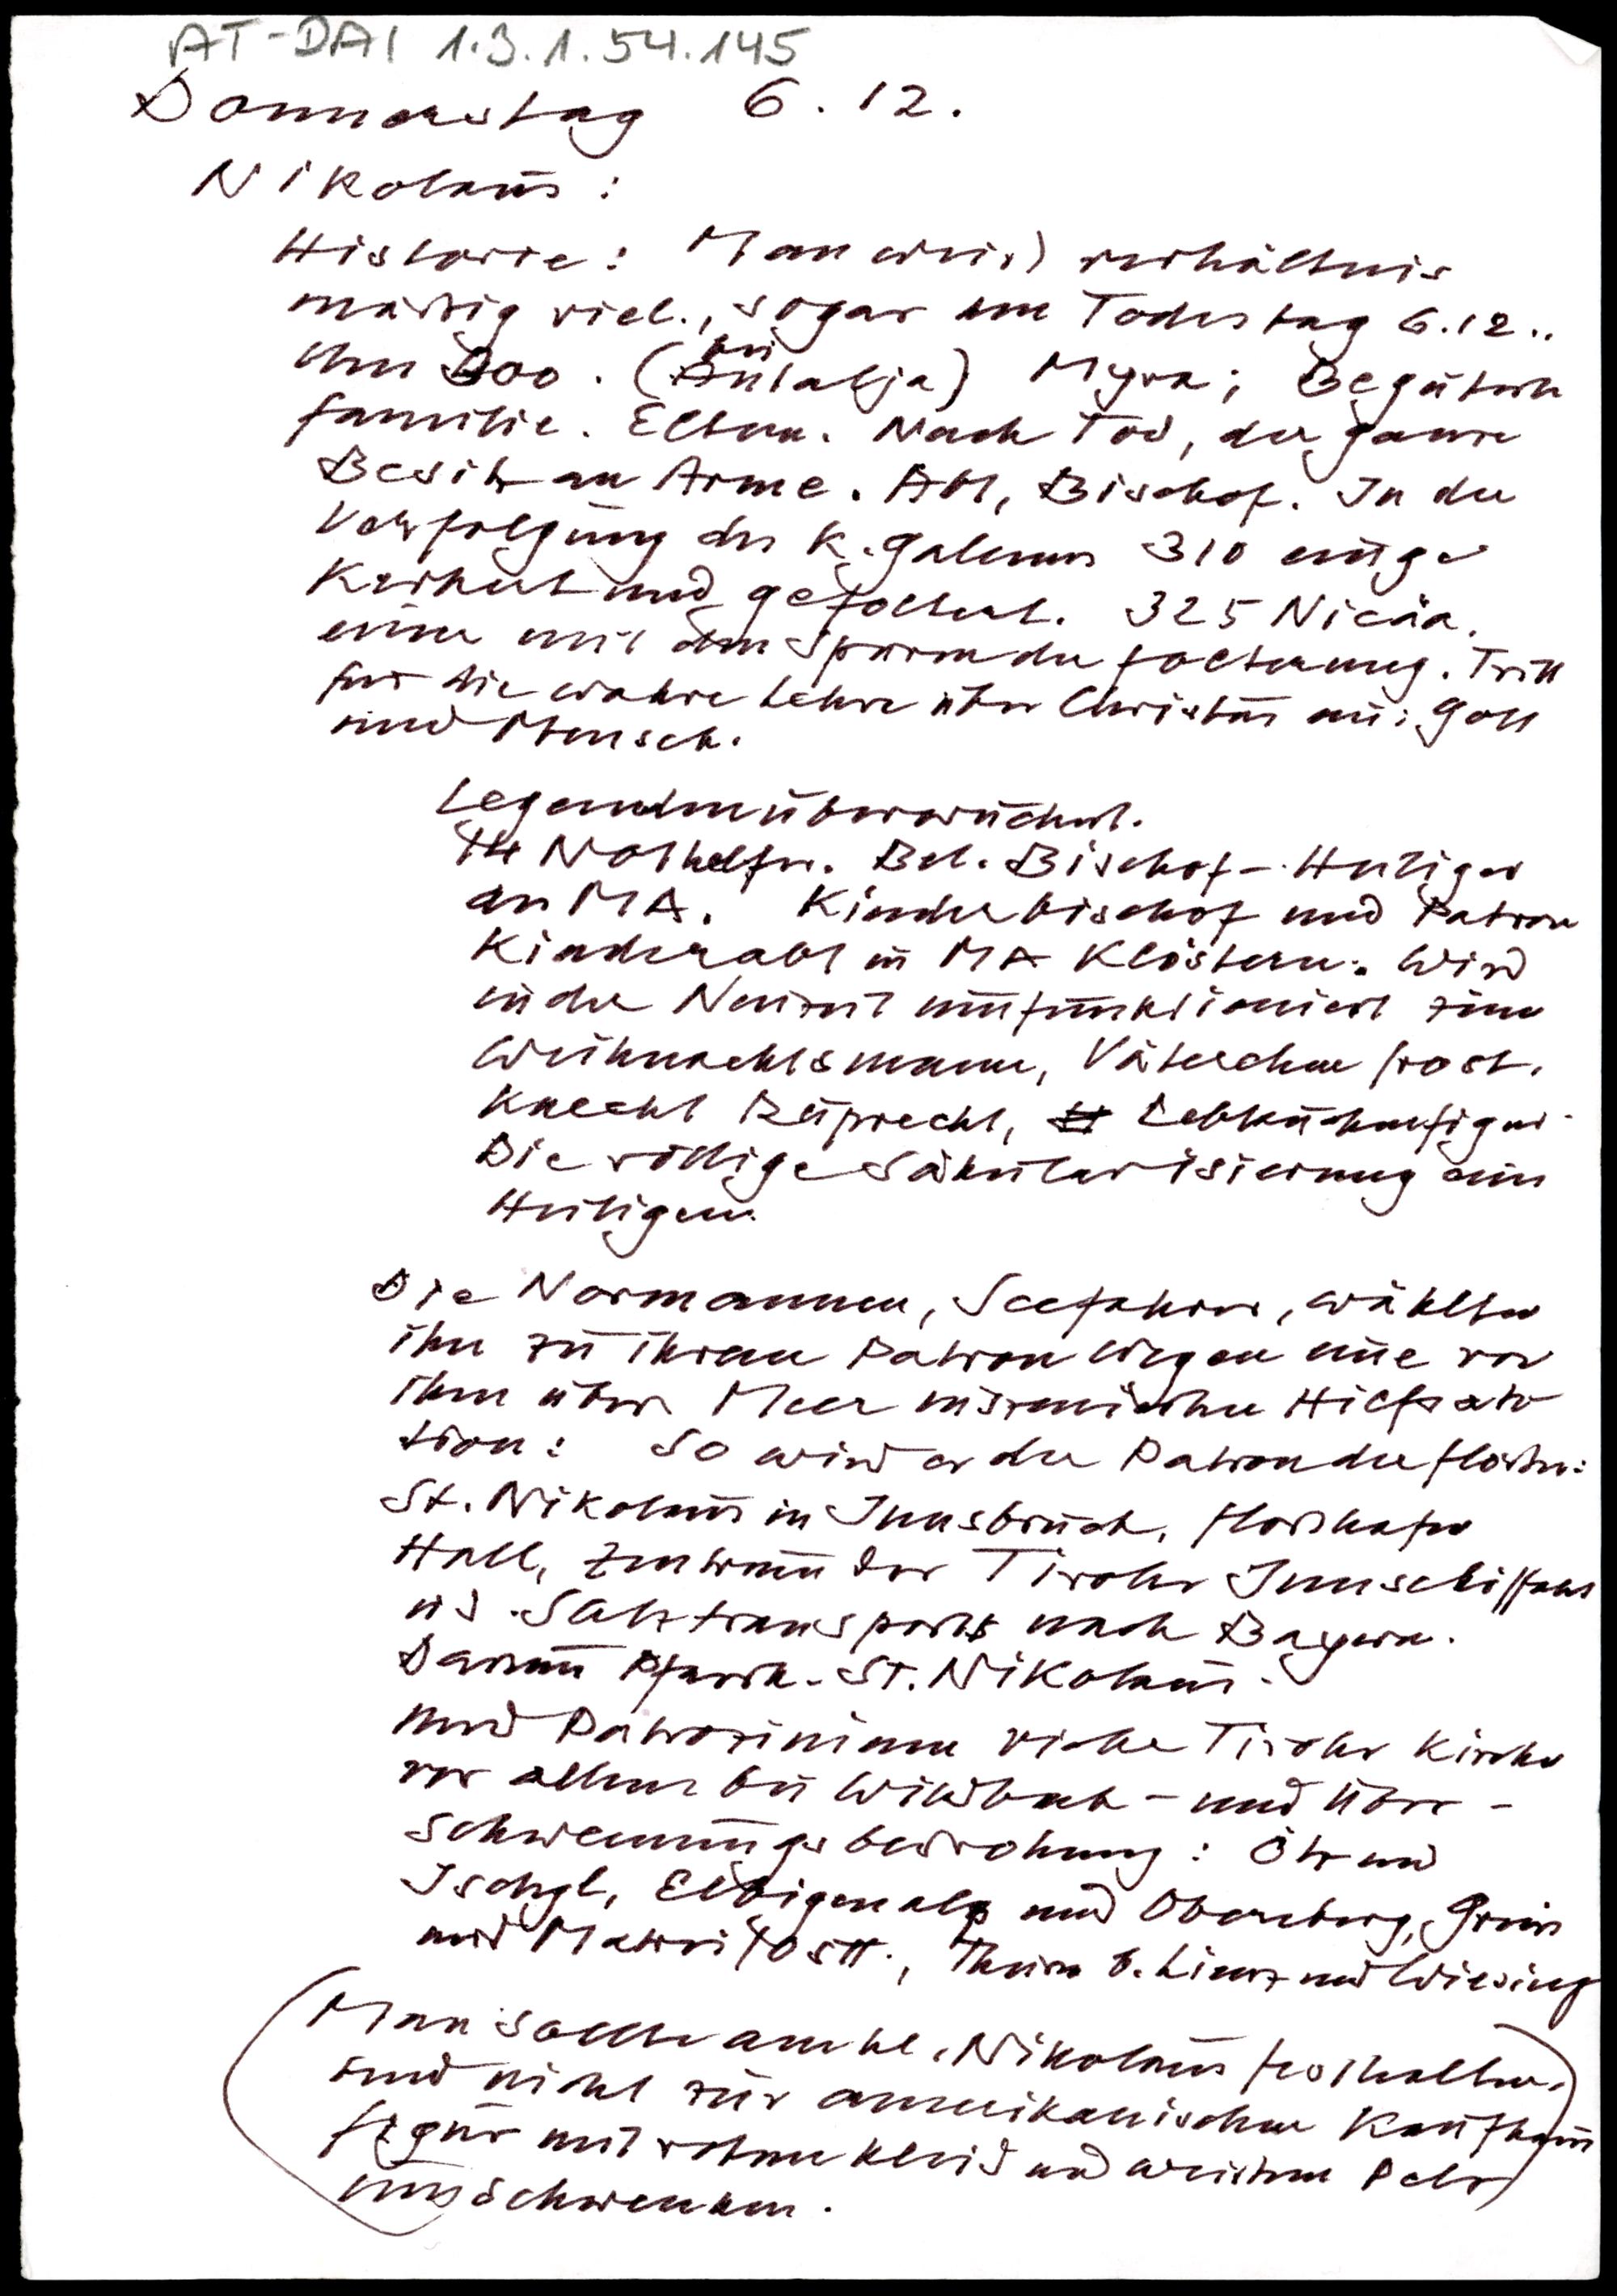 AT-DAI 1.3.1.54.145
Donnerstag 6.12.
Nikolaus:
Historie: Man weiß verhältnis
mäßig viel., sogar den Todestag 6.12..
Um 300. (bei Antalja) Myra; Begüterte
Familie. Eltern. Nach Tod, der ganze
Besitz an Arme. Abt, Bischof. In der
Verfolgung des K. Galerius 310 einge
kerkert und gefoltert. 325 Nicäa.
einer mit den Spuren der Folterung. Tritt
für die wahre Lehre über Christus ein: Gott
und Mensch.
Legendenüberwuchert.
14 Nothelfer. Bel. Bischof-Heiliger
des MA. Kinderbischof und Patron
Kinderabt in MA Klöstern. Wird
in der Neuzeit umfunktioniert zum
Weihnachtsmann, Väterchen Frost.
Knecht Ruprecht, Lebkuchenfigur.
Die völlige Säkularisierung eines
Heiligen.
Die Normannen, Seefahrer, wählten
ihn zu ihrem Patron wegen eine von
ihm über Meer inszenierten Hilfsak
tion: So wird er der Patron der Flößer:
St. Nikolaus in Innsbruck, Floßhafen
Hall, Zentrum der Tiroler Innschiffahrt
u d. Salztransports nach Bayern.
Darum Pfarrk. St. Nikolaus.
und Patrozinium vieler Tiroler Kirchen
vor allem bei Wildbach- und Über-
schwemmungsbedrohung: Ötz und
Ischgl, Elbigenalp und Obernberg, Gries
und Matrei/Ostt., Thurn b. Lienz und Wiesing
Man sollte am hl. Nikolaus festhalten.
und nicht zur amerikanischen Kaufhaus
figur mit rotem Kleid und weißem Pelz
umschwenken.